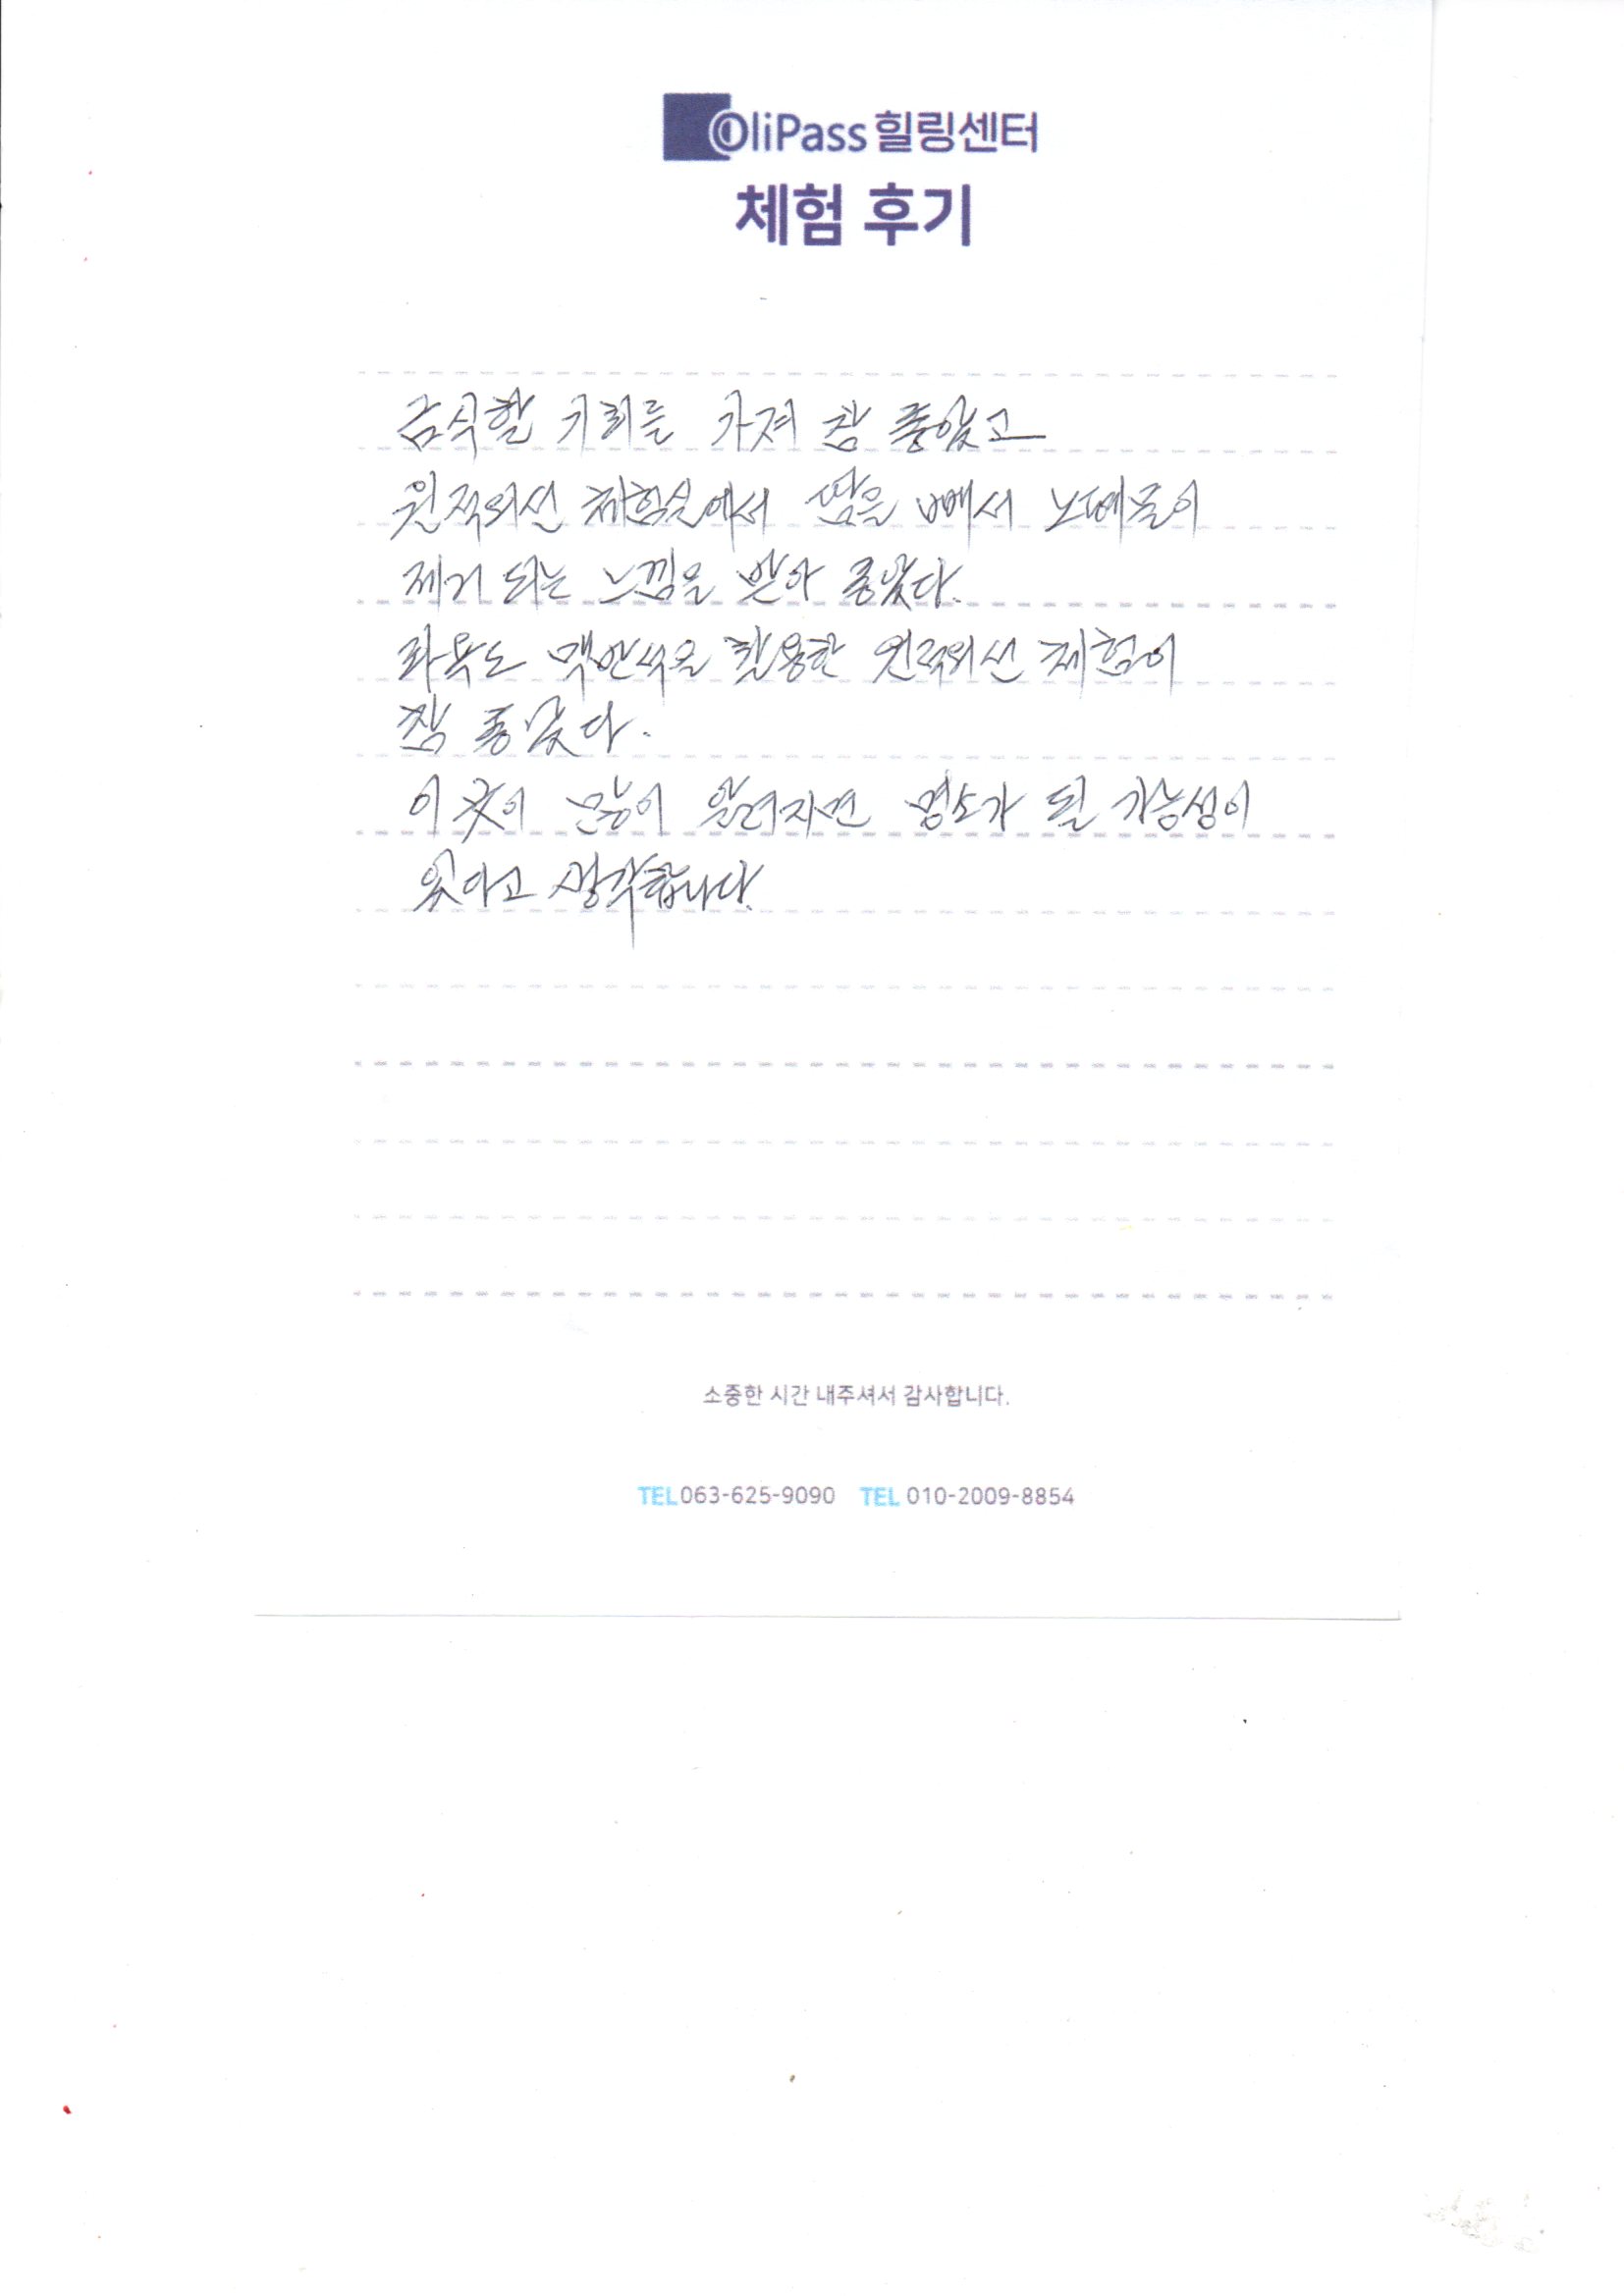 OliPass 힐링센터
체험 후기
금식할 기회를 가져 참 좋았고
원적외선 체험실에서 땀을 빼서 노폐물이
제거 되는 느낌을 받아 좋았다.
좌욕도 맥반석을 활용한 원적외선 체험이
참 좋았다.
이 곳이 많이 알려지면 명소가 될 가능성이
있다고 생각합니다.
소중한 시간 내주셔서 감사합니다.
TEL 063-625-9090 TEL 010-2009-8854